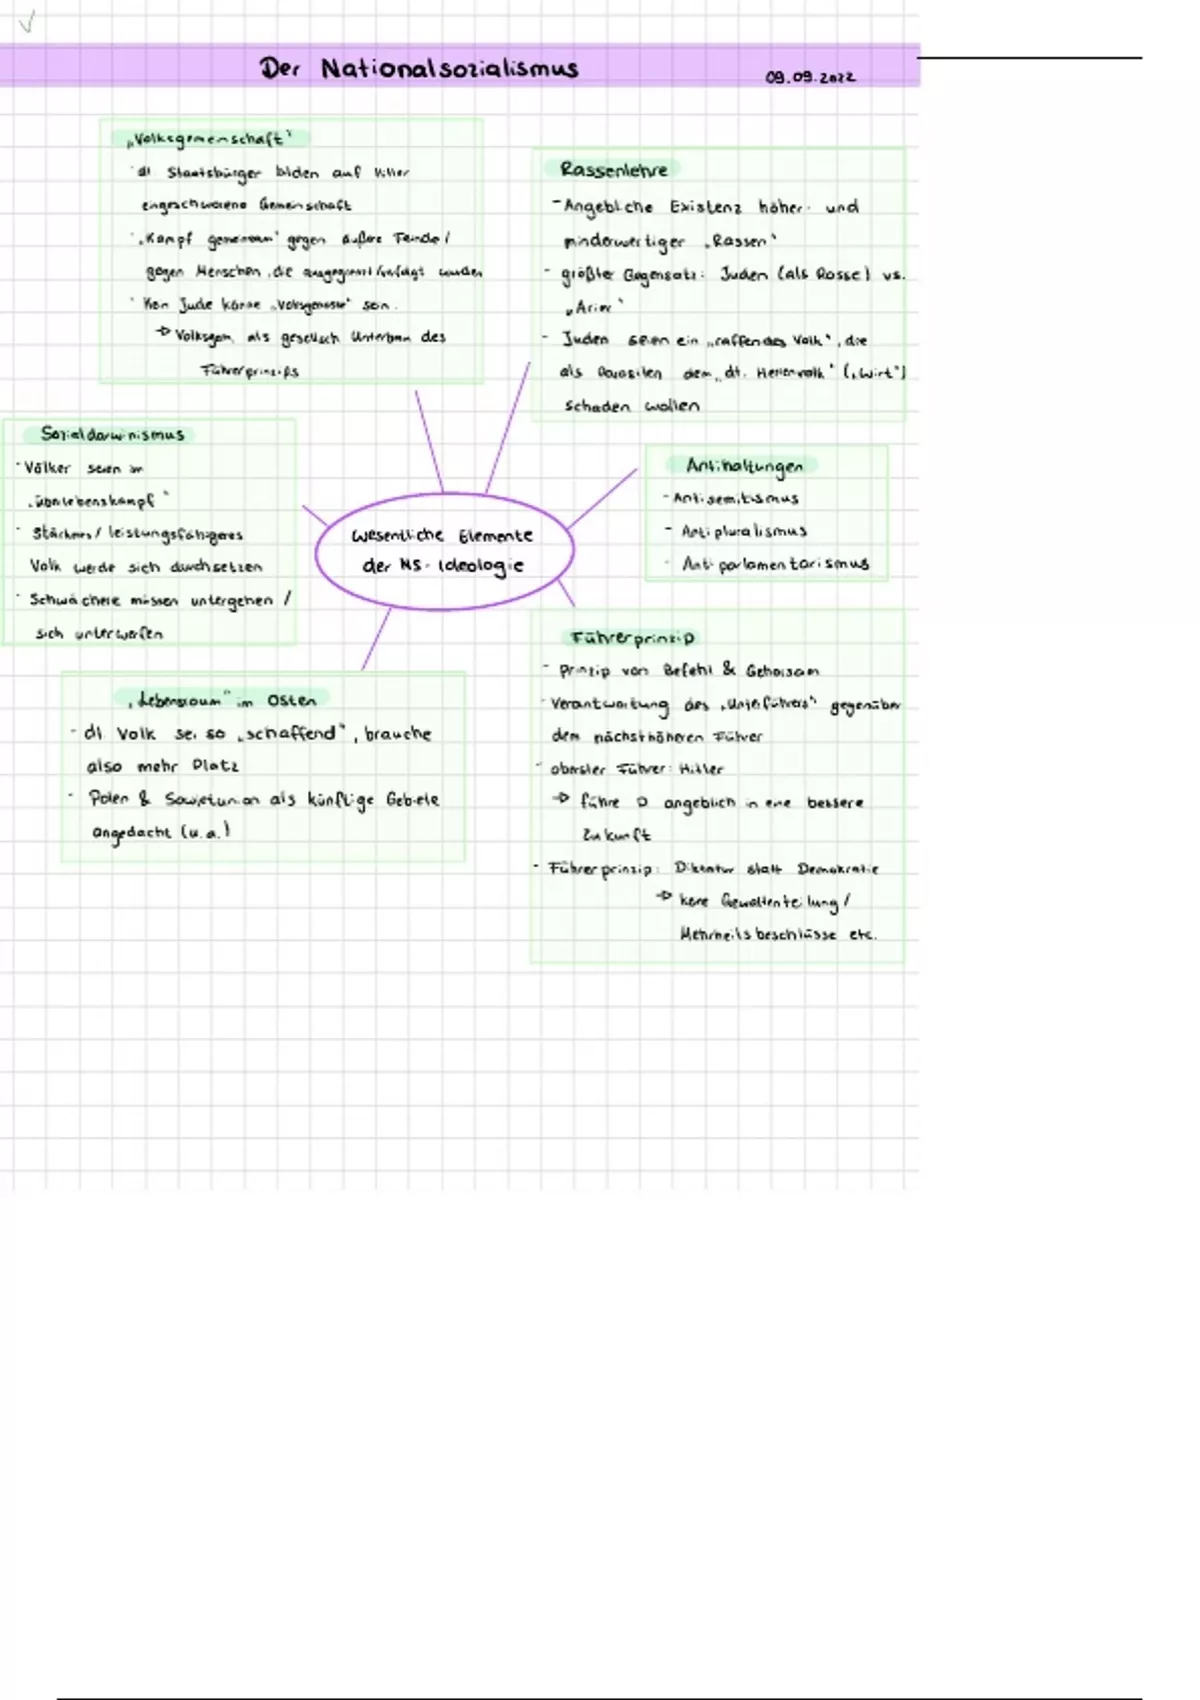 Der Nationalsozialismus
09.09.2022
„Volksgemeinschaft"
dt. Staatsbürger bilden auf Hitler
eingeschworene Gemeinschaft
„Kampf gemeinsam" gegen äußere Feinde /
gegen Menschen, die ausgegrenzt/verfolgt wurden
Kein Jude könne „Volksgenosse" sein.
→ Volksgem. als gesellsch. Unterbau des
Führerprinzips
Rassenlehre
- Angebliche Existenz höher- und
minderwertiger „Rassen"
- größter Gegensatz: Juden (als Rasse) vs.
„Arier"
- Juden seien ein „raffendes Volk", die
als Parasiten dem „dt. Herrenvolk" („Wirt")
schaden wollen
Sozialdarwinismus
- Völker seien im
„Überlebenskampf"
- Stärkeres / leistungsfähigeres
Volk werde sich durchsetzen
- Schwächere müssen untergehen /
sich unterwerfen
Wesentliche Elemente
der NS-Ideologie
Antihaltungen
- Antisemitismus
- Antipluralismus
- Antiparlamentarismus
„Lebensraum" im Osten
- dt. Volk sei so „schaffend", brauche
also mehr Platz
- Polen & Sowjetunion als künftige Gebiete
angedacht (u.a.)
Führerprinzip
- Prinzip von Befehl & Gehorsam
- Verantwortung des „Unterführers" gegenüber
dem nächsthöheren Führer
- oberster Führer: Hitler
→ führe D angeblich in eine bessere
Zukunft
- Führerprinzip: Diktatur statt Demokratie
→ keine Gewaltenteilung /
Mehrheitsbeschlüsse etc.